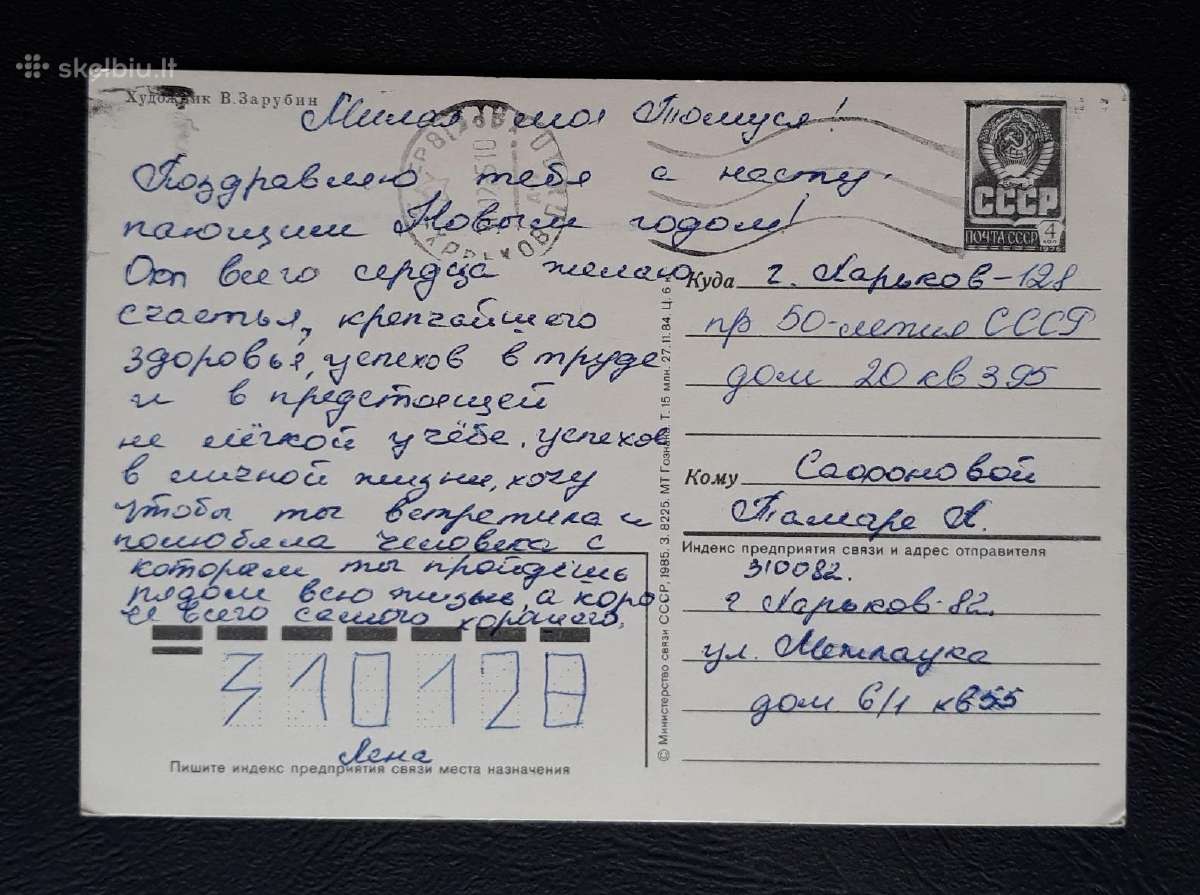 skelbiu.lt
Художник В.Зарубин
Милая моя Томуся!
Поздравляю тебя с насту-
пающим Новым годом!
От всего сердца желаю
счастья, крепчайшего
здоровья, успехов в труде
и в предстоящей
не лёгкой учёбе, успехов
в личной жизни, хочу
чтобы ты встретила и
полюбила человека с
которым ты пройдёшь
рядом всю жизнь, а коро
че всего самого хорошего.
310128
Лена
Пишите индекс предприятия связи места назначения
© Министерство связи СССР, 1985. З. 8225. МТ Гознака. Т. 15 млн. 27.11.84. Ц. 6 к.
СССР
ПОЧТА СССР 4 коп
1976
ХАРЬКОВ
Куда г. Харьков-128
пр 50-летия СССР
дом 20 кв 395
Кому Сафроновой
Тамаре А.
Индекс предприятия связи и адрес отправителя
310082.
г Харьков-82.
ул. Межлаука
дом 6/1 кв55